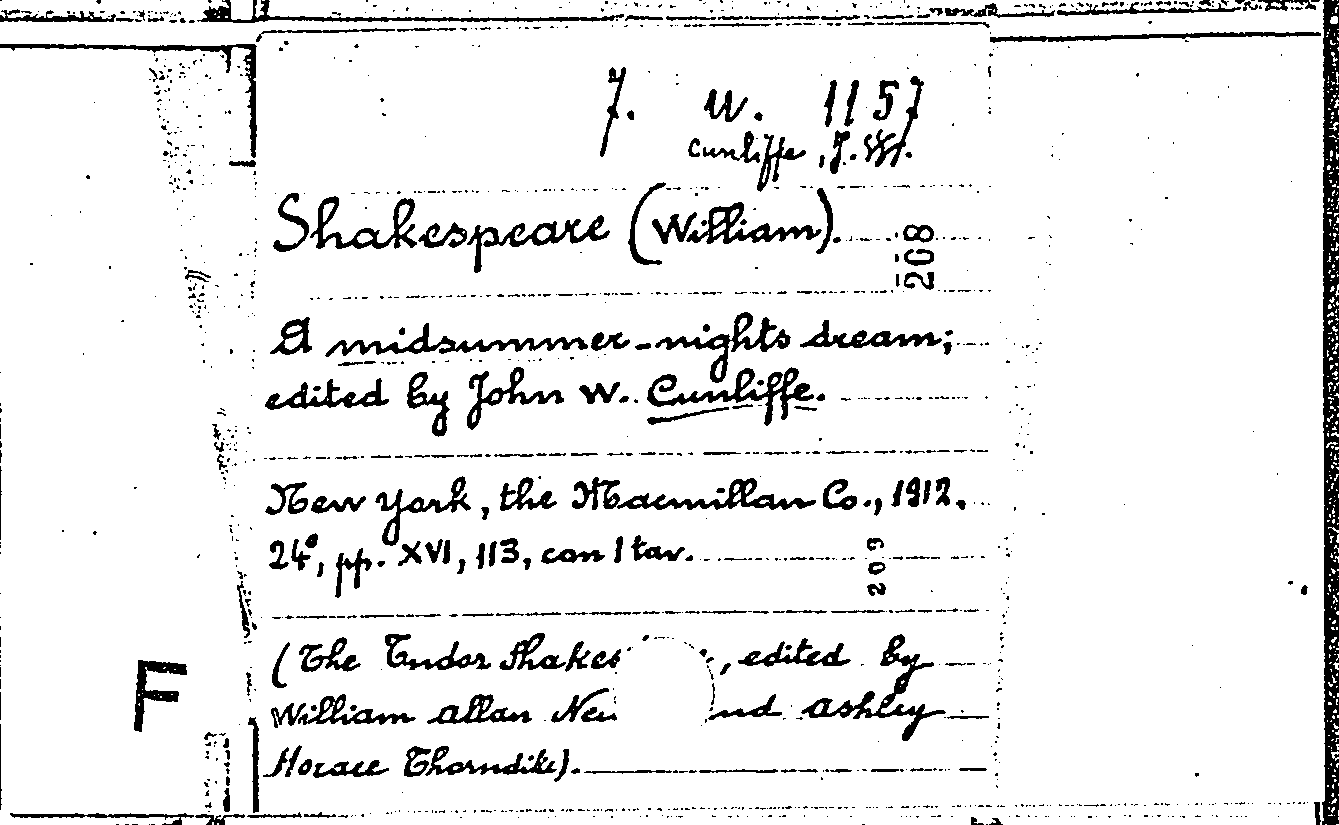 7. W. 1157
Cunliffe, J. W.
Shakespeare (William).
268
A midsummer-nights dream;
edited by John W. Cunliffe.
New York, the Macmillan Co., 1912.
24°, pp. XVI, 113, con 1 tav.
209
(The Tudor Shakes , edited by
William Allan Nei nd Ashley
Horace Thorndike).
F